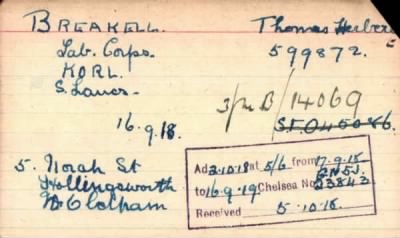 BREAKELL. Thomas Herber
Lab. Corps. 599872.
KORL.
S. Lancs. 3/MB/14069
16.9.18. S.F.045086.
5. Norah St
Hollingsworth
Ad 2.10.18 at 5/6 from 17.9.18
to 16.9.19 Chelsea No 23843
Received 5.10.18.